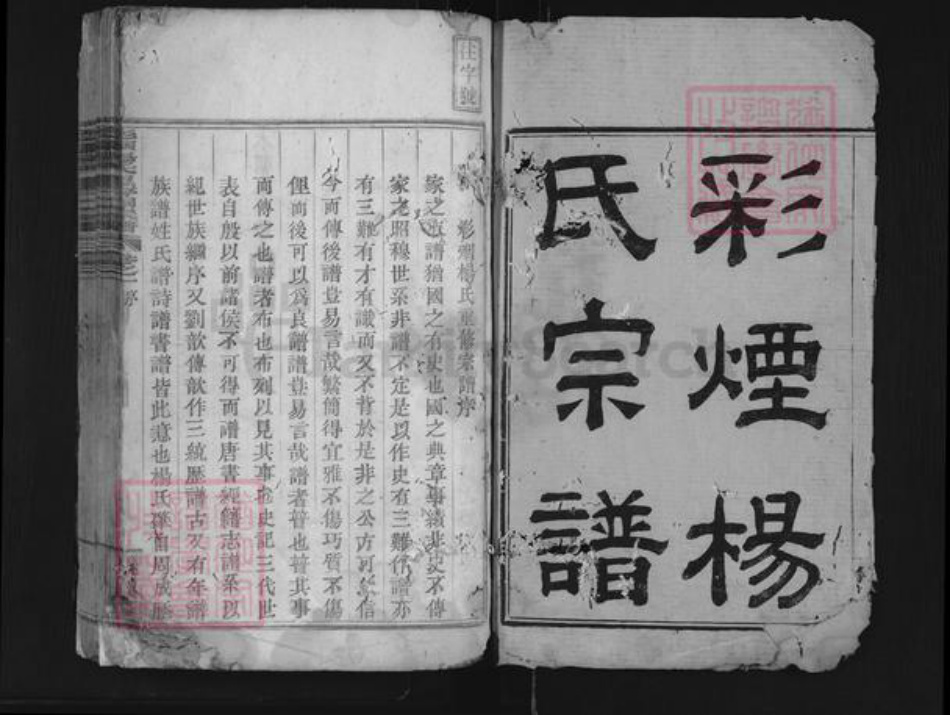 彩煙楊
氏宗譜
往字號
彩煙楊氏重修宗譜序
家之有譜猶國之有史也國之典章事績非史不傳
家之昭穆世系非譜不定是以作史有三難作譜亦
有三難有才有識而又不背於是非之公方可以信
今而傳後譜豈易言哉繁簡得宜雅不傷巧質不傷
俚而後可以為良譜譜豈易言哉譜者普也普其事
而傳之也譜者布也布列以見其事也史記三代世
表自殷以前諸侯不可得而譜唐書經籍志譜系以
紀世族繼序又劉歆傳歆作三統歷譜古又有年譜
族譜姓氏譜詩譜書譜皆此意也楊氏肇自周成
卷一 序